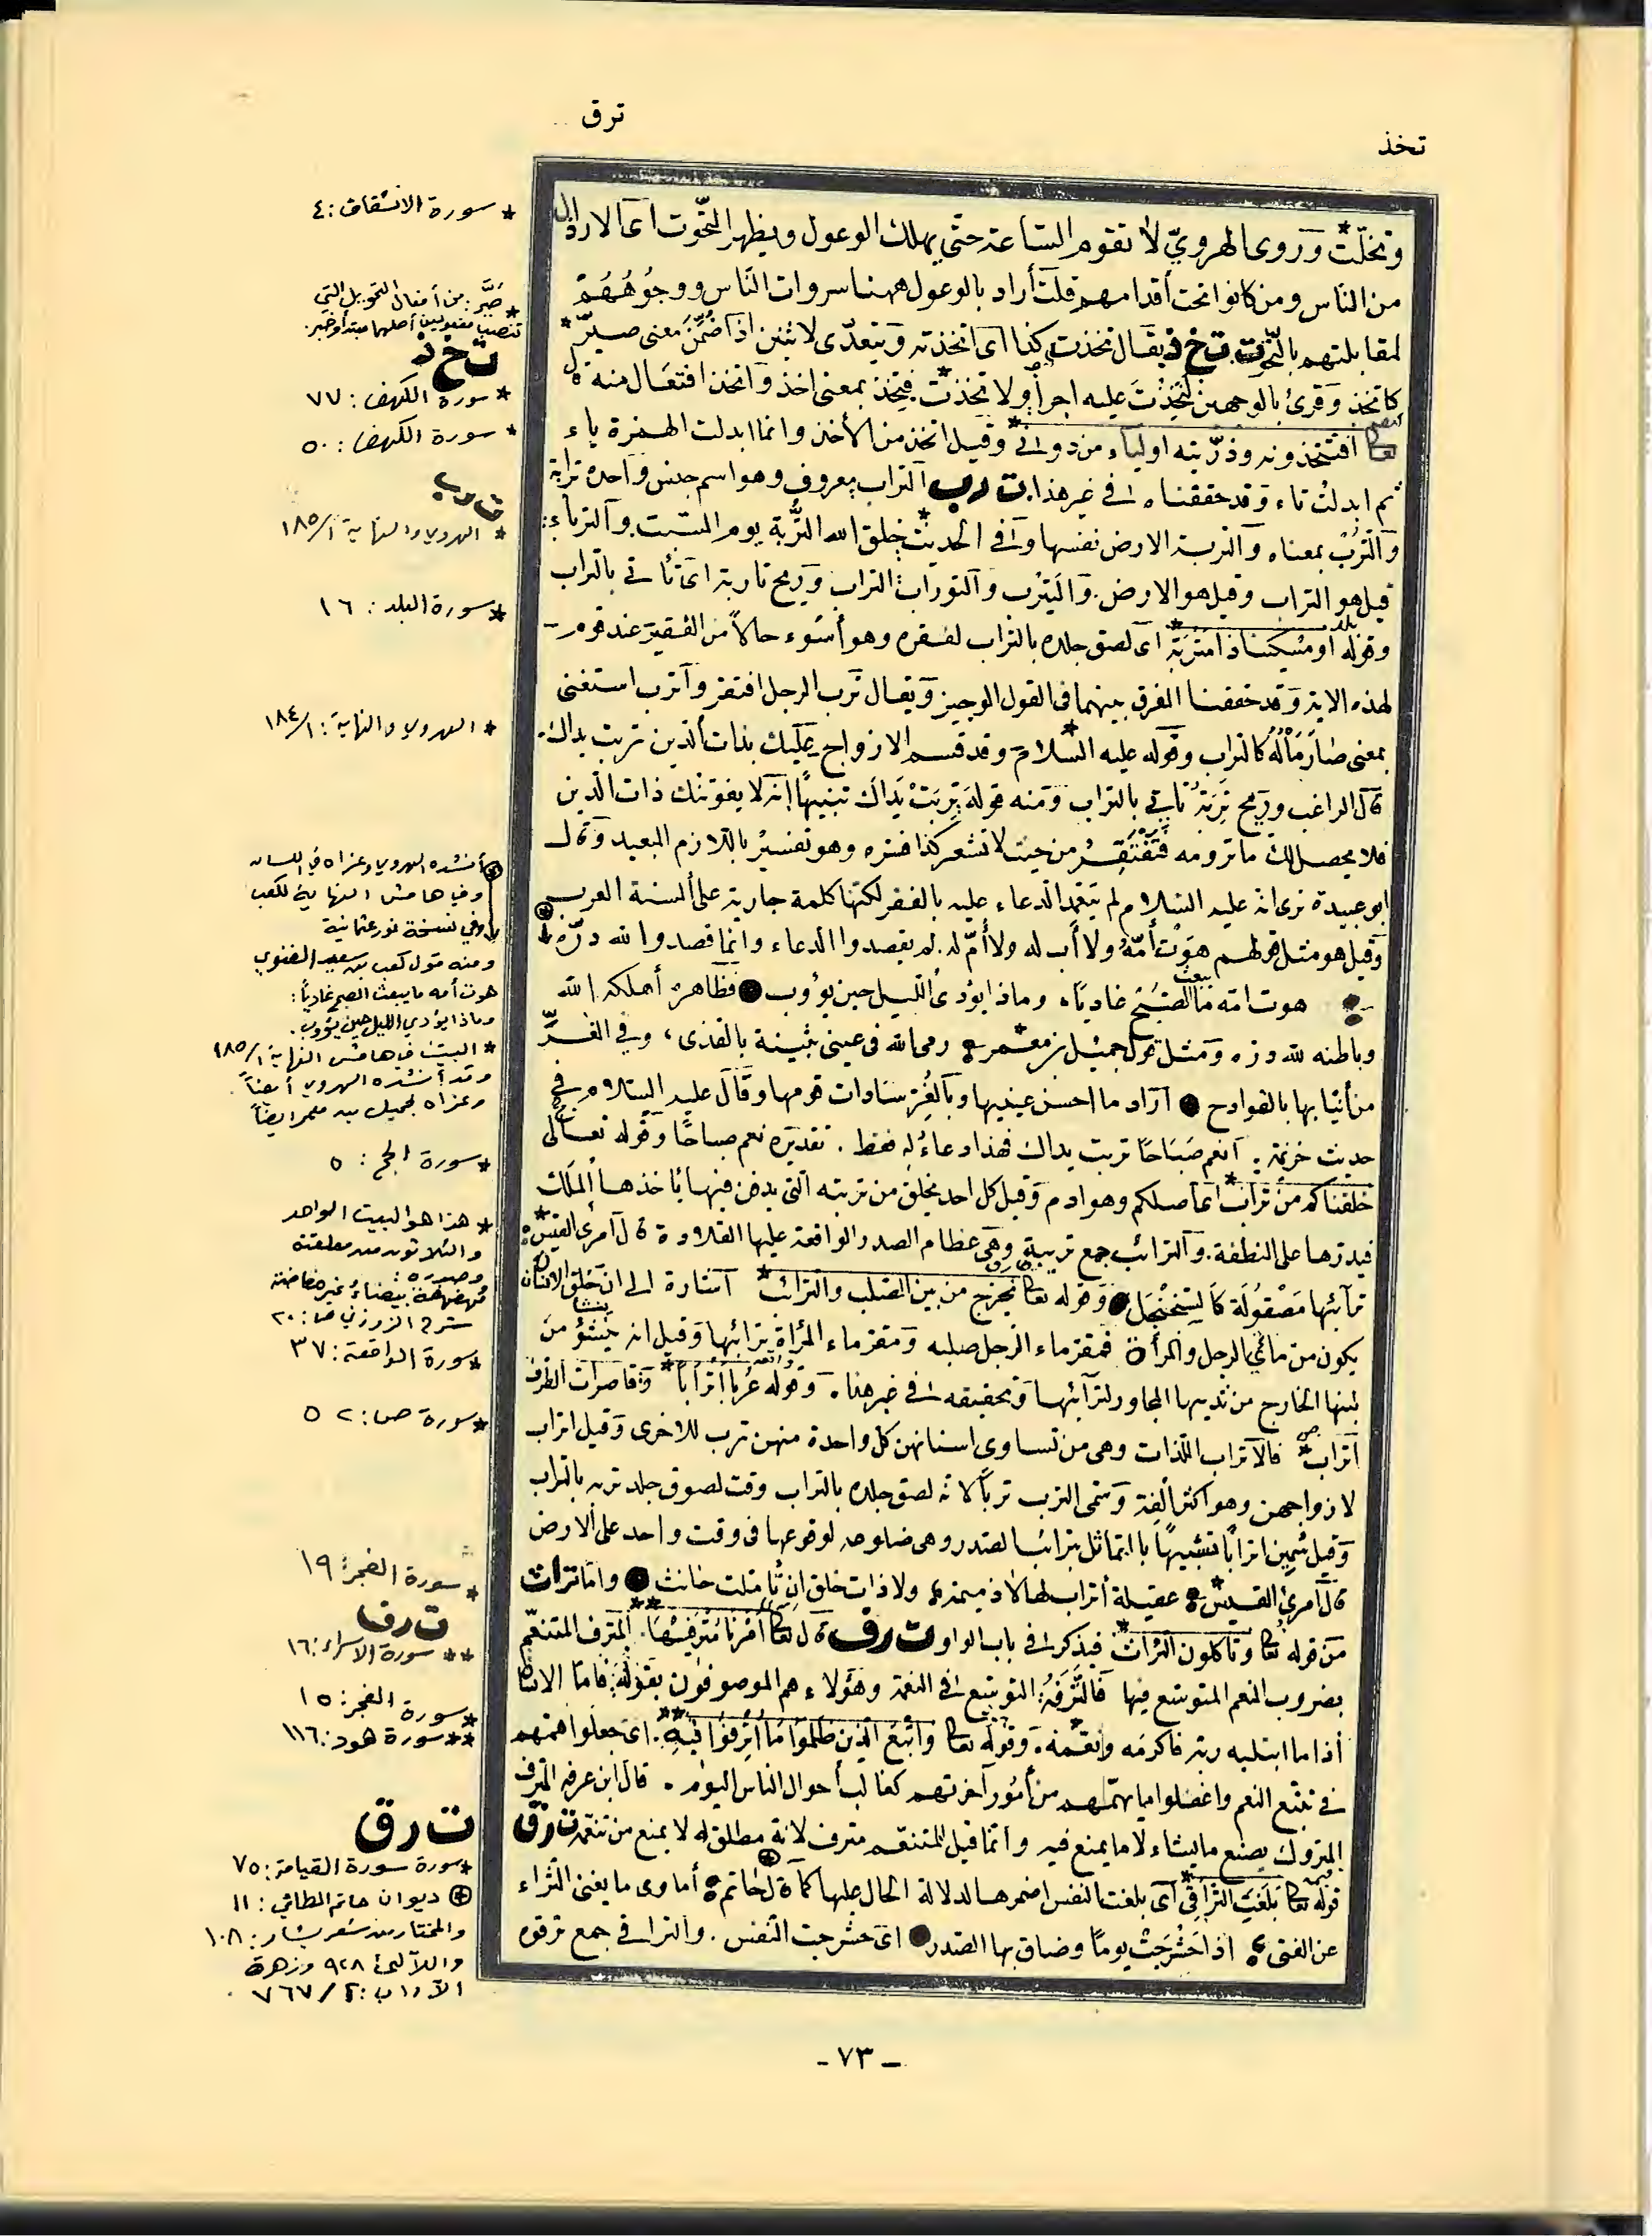 تخذ
ترق
وتخلّت وروى الهرويّ لا تقوم الساعة حتّى يهلك الوعول ويظهر التحّوت اى الاراذل
من الناس ومن كانوا تحت أقدامهم قلت أراد بالوعول ههنا سروات النّاس ووجوههم
لمقابلتهم بالتحوت ت خ ذ يقال تخذت كذا اى اتخذته ويتعدّى لاثنين اذا ضُمّن معنى صيّر
كاتخذ وقرئ بالوجهين لتخذت عليه اجرا ولاتخذت فتخذ بمعنى اخذ واتخذ افتعال منه قال
تعا افتتخذونه وذرّيته اولياء من دونى وقيل اتخذ من الأخذ وانما ابدلت الهمزة ياء
ثم ابدلت تاء وقد حققناه فى غير هذا ت ر ب التراب معروف وهو اسم جنس واحده ترابة
والتّرب بمعناه والتربة الارض نفسها وفى الحديث خلق الله التربة يوم السّبت والترباء
قيل هو التراب وقيل هو الارض والتيرب والتوراب التراب وريح تاربة اى تأتى بالتراب
وقوله او مسكينا ذا متربة اى لصق جلده بالتراب لفقره وهو أسوء حالاً من الفقير عند قوم
لهذه الاية وقد حققنا الفرق بينهما فى القول الوجيز ويقال ترب الرجل افتقر وأترب استغنى
بمعنى صار مَالُهُ كالتراب وقوله عليه السلام وقد قسم الازواج عليك بذات الدين تربت يداك
قال الراغب وريح تربة تأتى بالتراب ومنه قوله تربت يداك تنبيهًا انه لا يفوتنك ذات الدين
فلا يحصل لك ما ترومه فتفتقر من حيث لا تشعر كذا فسّره وهو تفسير باللازم البعيد وقال
ابو عبيدة نرى انه عليه السلام لم يتعمد الدعاء عليه بالفقر لكنها كلمة جارية على ألسنة العرب
وقيل هو مثل قولهم هوت أمّه ولا أب له ولا أمّ له لم يقصدوا الدعاء وانما قصدوا لله درّه
هوت امّه ما يبعث الصّبح غاديًا وماذا يؤدى الليل حين يؤوب فظاهره أهلكه الله
وباطنه لله درّه ومثل قول جميل بن معمر رمى الله فى عينى بثينة بالقذى وفى الغرّ
من أنيابها بالقوادح أراد ما احسن عينيها وبالغرّ سادات قومها وقال عليه السلام فى
حديث خزيمة أنعم صباحًا تربت يداك فهذا دعاء له فقط تقديره نعم صباحًا وقوله تعالى
خلقناكم من تراب اى اصلكم وهو ادم وقيل كل احد يخلق من تربته التى يدفن فيها يأخذها الملك
فيذرها على النطفة والترائب جمع تريبة وهى عظام الصدر الواقعة عليها القلادة قال امرئ القيس
ترائبها مصقولة كالسّجنجل وقوله تعا يخرج من بين الصلب والترائب اشارة الى ان خلق الانسان
يكون من مائي الرجل والمرأة فمقر ماء الرجل صلبه ومقر ماء المرأة ترائبها وقيل انه ينشؤ من
لبنها الخارج من ثدييها المجاور لترائبها وتحقيقه فى غير هذا وقوله عُربا أترابا وقاصرات الطرف
أتراب فالأتراب اللذات وهى من تساوى اسنانهن كل واحدة منهن ترب للاخرى وقيل اتراب
لازواجهن وهو اكثر ألفة وسمّى الترب تربًا لانه لصق جلده بالتراب وقت لصوق جلد تربه بالتراب
وقيل سُمين اترابًا تشبيهًا بالتماثل بترائب الصدر وهى ضلوعه لوقوعها فى وقت واحد على الارض
قال امرئ القيس عقيلة أتراب لها لا ذميمة ولا ذات خلق ان تأملت جانب وامّا تراث
من قوله تعا وتأكلون التراث فيذكر فى باب الواو ت ر ف قال تعا أمرنا مترفيها المترف المتنعّم
بضروب النعم المتوسّع فيها فالتّرفه التوسّع فى النعمة وهؤلاء هم الموصوفون بقوله فامّا الانسان
اذا ما ابتليه ربّه فاكرمه ونعّمه وقوله تعا واتبع الذين ظلموا ما أترفوا فيه اى جعلوا همتهم
فى تتبع النعم واغفلوا ما يهمّهم من أمور آخرتهم كغالب أحوال الناس اليوم قال ابن عرفه المترف
المتروك يصنع ما يشاء لا ما يمنع فيه وانما قيل للمتنعّم مترف لانه مطلق له لا يمنع من تنعّمه ت ر ق
قوله تعا بلغت التراقى اى بلغت النفس اضمرها لدلالة الحال عليها كما قال حاتم أماوى ما يغنى الثراء
عن الفتى اذا حشرجت يومًا وضاق بها الصدر اى حشرجت النفس والتراقى جمع ترقوه
* سورة الانشقاق: ٤
* صَيَّر: من أفعال التحويل التي
تنصب مفعولين أصلهما مبتدأ وخبر.
ت خ ذ
* سورة الكهف: ٧٧
* سورة الكهف: ٥٠
ت ر ب
* الهروي والنهاية ١/١٨٥
* سورة البلد: ١٦
* الهروي والنهاية: ١/١٨٤
أنشده الهروي وعزاه في اللسان
وفي هامش النهاية لكعب
وفي نسخة نور عثمانية
ومنه قول كعب بن سعيد الغنوي
هوت أمه ما يبعث الصبح غادياً:
وماذا يؤدي الليل حين يؤوب.
* البيت في هامش النهاية ١/١٨٥
وقد أنشده الهروي أيضاً
وعزاه لجميل بن معمر أيضاً
* سورة الحج: ٥
* هذا هو البيت الواحد
والثلاثون من معلقته
وصدره:
مُهفهفة بيضاءُ غير مفاضة
شرح الزوزني ص: ٢٠
* سورة الواقعة: ٣٧
* سورة ص: ٥٢
* سورة الفجر: ١٩
ت ر ف
** سورة الاسراء: ١٦
* سورة الفجر: ١٥
** سورة هود: ١١٦
ت ر ق
* سورة سورة القيامة: ٧٥
ديوان حاتم الطائي: ١١
والمختار من شعر بشار: ١٠٨
واللآلئ ٩٢٨ وزهرة
الآداب: ٢/٧٦٧
- ٧٣ -